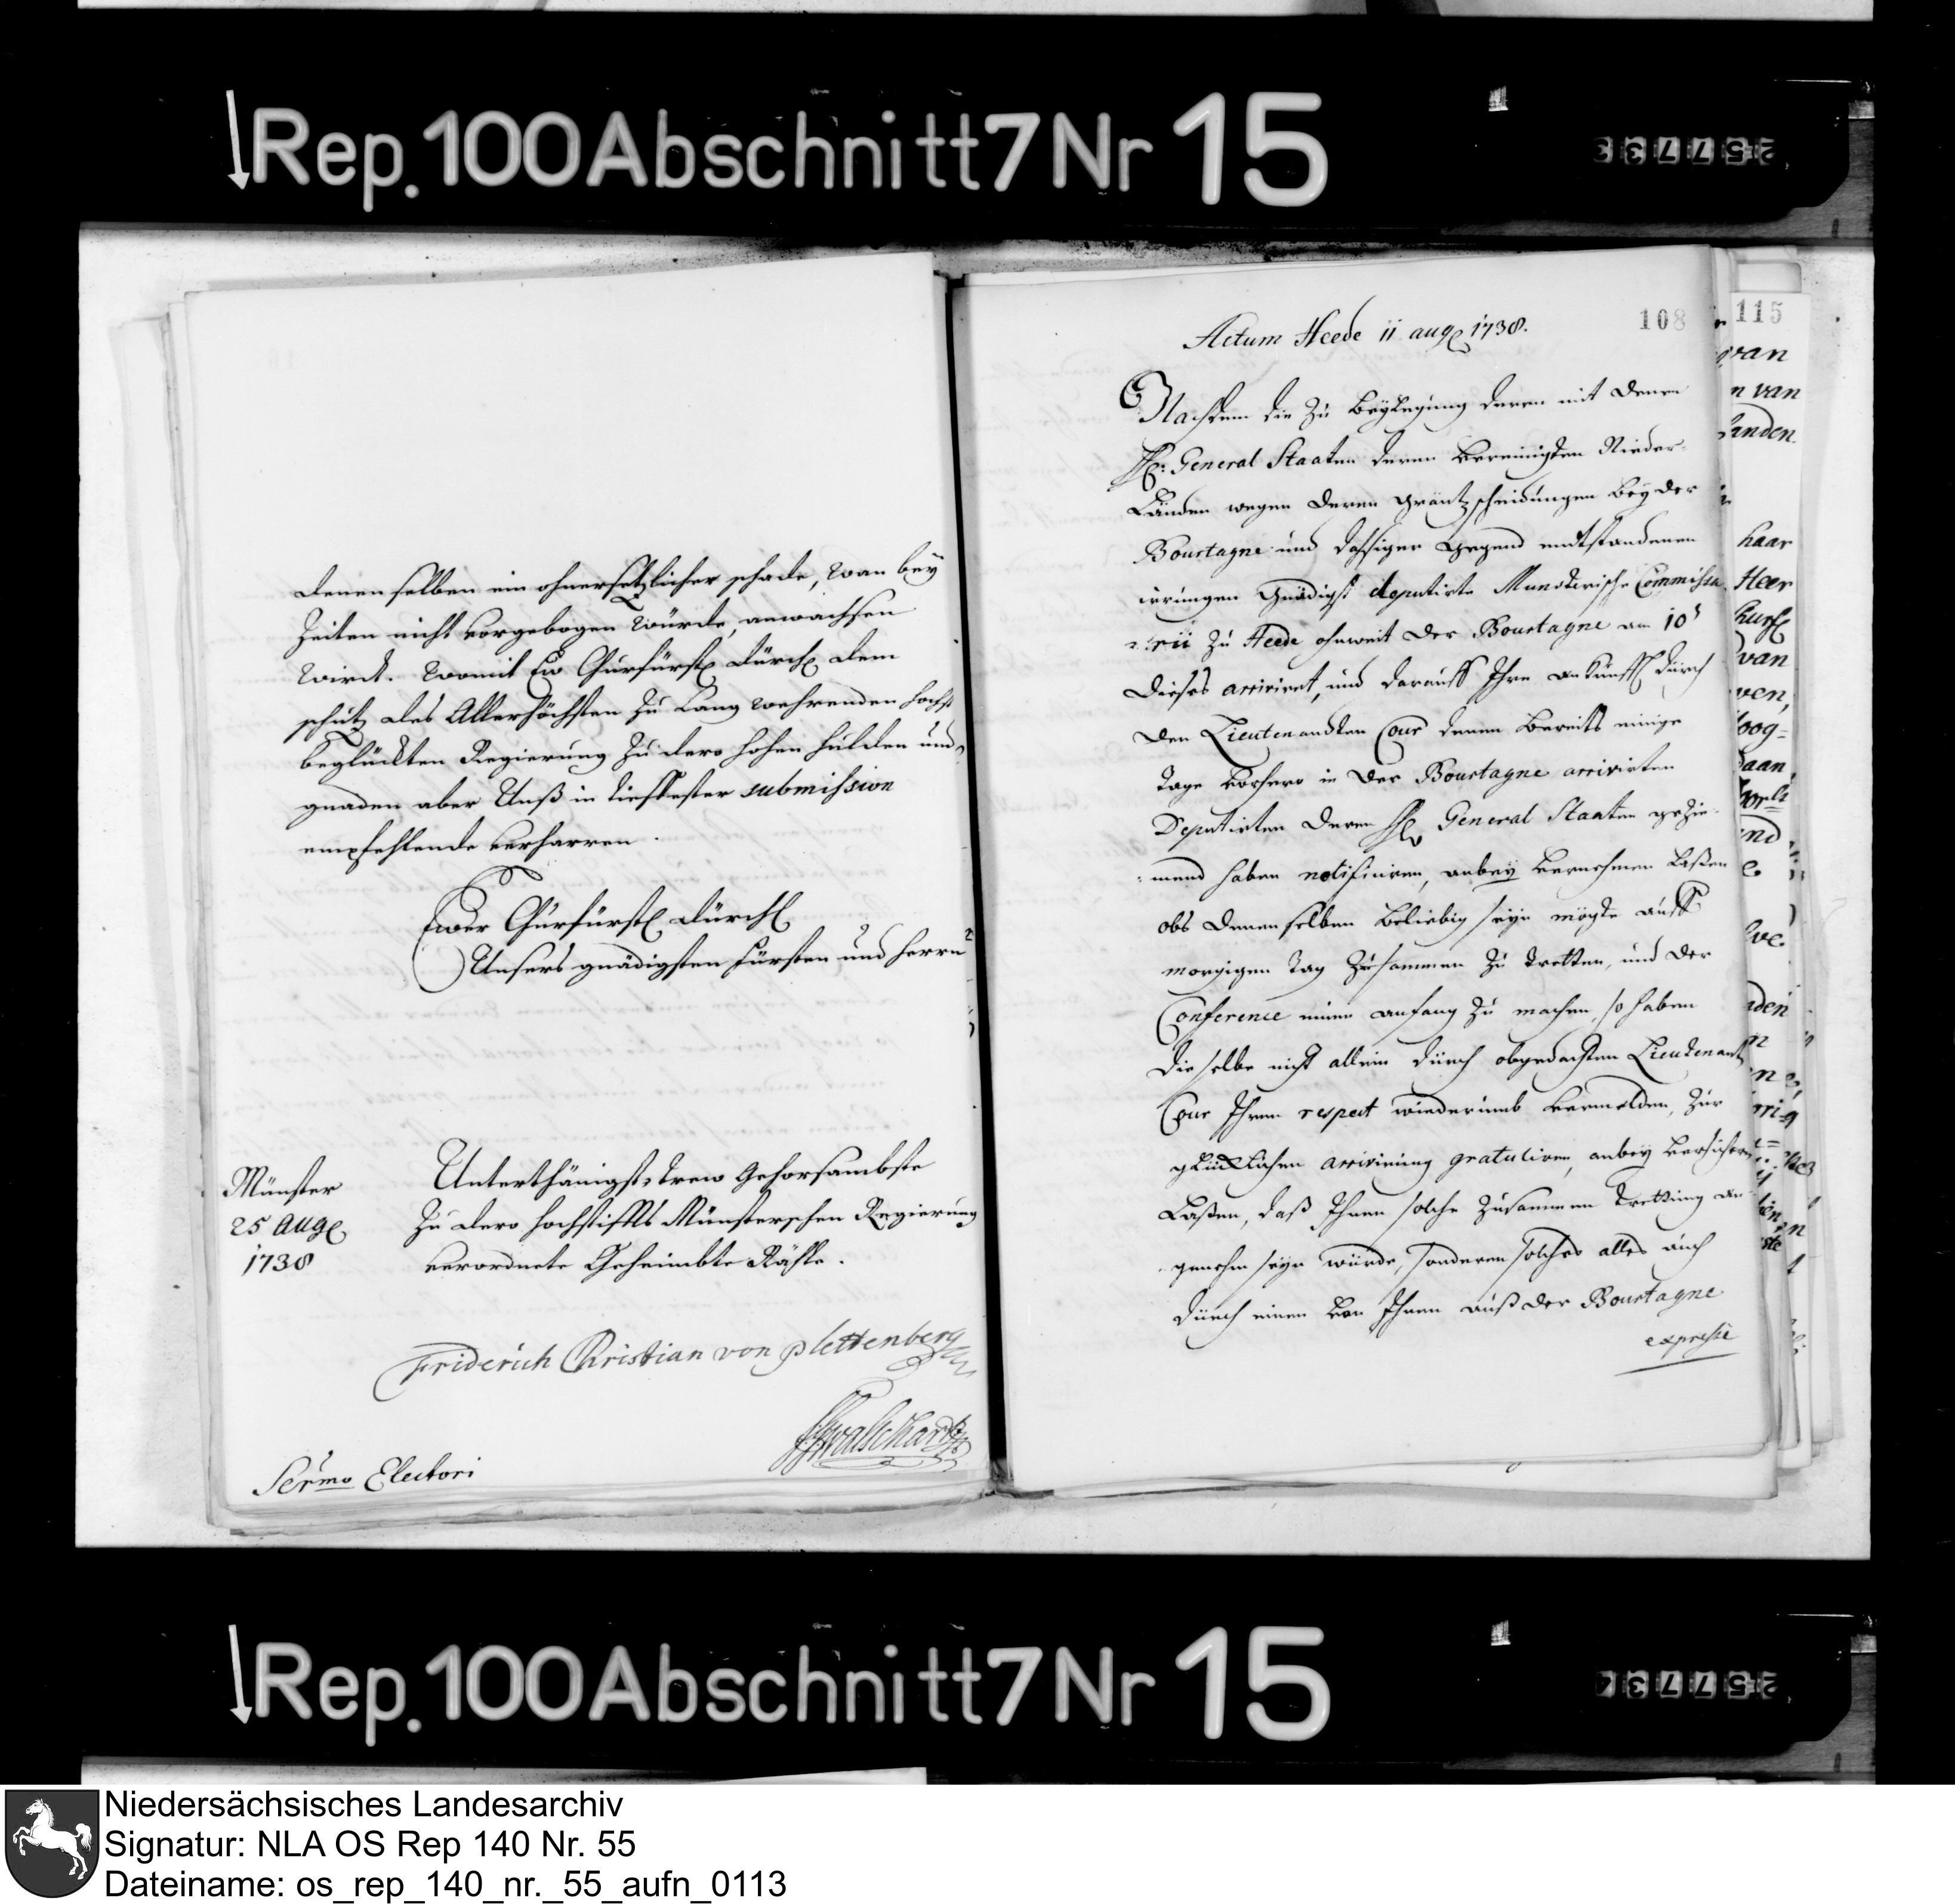 Rep. 100 Abschnitt 7 Nr 15
257733
denenselben ein ohnersetzlicher schade, wan bey
Zeiten nicht vorgebogen würde, anwachsen
wird. womit Ew Churfürstl Dürchl dem
schütz des Allerhöchsten zu Lang wehrenden höchst
beglückten Regierung zu dero hohen hulden und
gnaden aber Unß in tieffester submission
empfehlende verharren.
Ewer Churfürstl Dürchl
Unsers gnädigsten Fürsten und Herrn
Münster
25 Aug
1738
Unterthänigst, trew Gehorsambste
Zu dero hochstiffts Münsterschen Regierung
verordnete Geheimbte Räthe.
Friderich Christian von plettenberg
Ser̃mo Electori
108
Actum Heede 11 aug 1738.
Nachdem die zu Beylegung deren mit denen
HH: General Staaten deren Vereinigten Nieder-
Landen wegen deren gräntzscheidungen bey der
Bourtagne und dasiger gegend endtstandenen
irrungen gnädigst deputirte Munsterische Commissa
rii zu Heede ohnweit der Bourtagne am 10t
dieses arrivirt, und darauff Ihre ankunfft durch
den Lieutenandten Cour denen bereits einige
tage vorhero in der Bourtagne arrivirten
Deputirten deren HH General Staaten gezie-
mend haben notificiren, anbey vernehmen laßen
obs denenselben beliebig seyn mögte auff
morgigen tag zusammen zu tretten, und der
Conference einen anfang zu machen, so haben
dieselbe nicht allein durch obgedachten Lieutenant
Cour Ihren respect wiederumb vermelden, zur
glücklichen arrivirung gratuliren, anbey versichern
laßen, daß Ihnen solche zusammen trettung an-
genehm seyn würde, sonderen solches alles auch
durch einen von Ihnen auß der Bourtagne
expresse
115
van
n van
anden
haar
Heer
van
ven,
oog=
aan
Rep. 100 Abschnitt 7 Nr 15
Niedersächsisches Landesarchiv
Signatur: NLA OS Rep 140 Nr. 55
Dateiname: os_rep_140_nr._55_aufn_0113